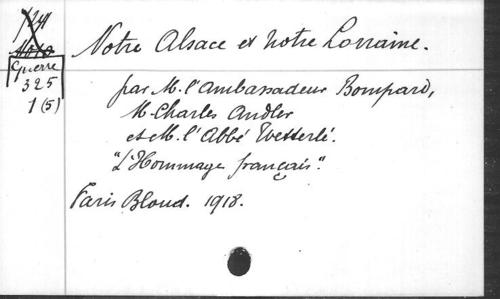 Notre Alsace et notre Lorraine.
Guerre
325
1 (5)
par M. l'Ambassadeur Bompard,
M. Charles Andler
et M. l'Abbé Wetterlé.
"L'Hommage français".
Paris Bloud. 1918.